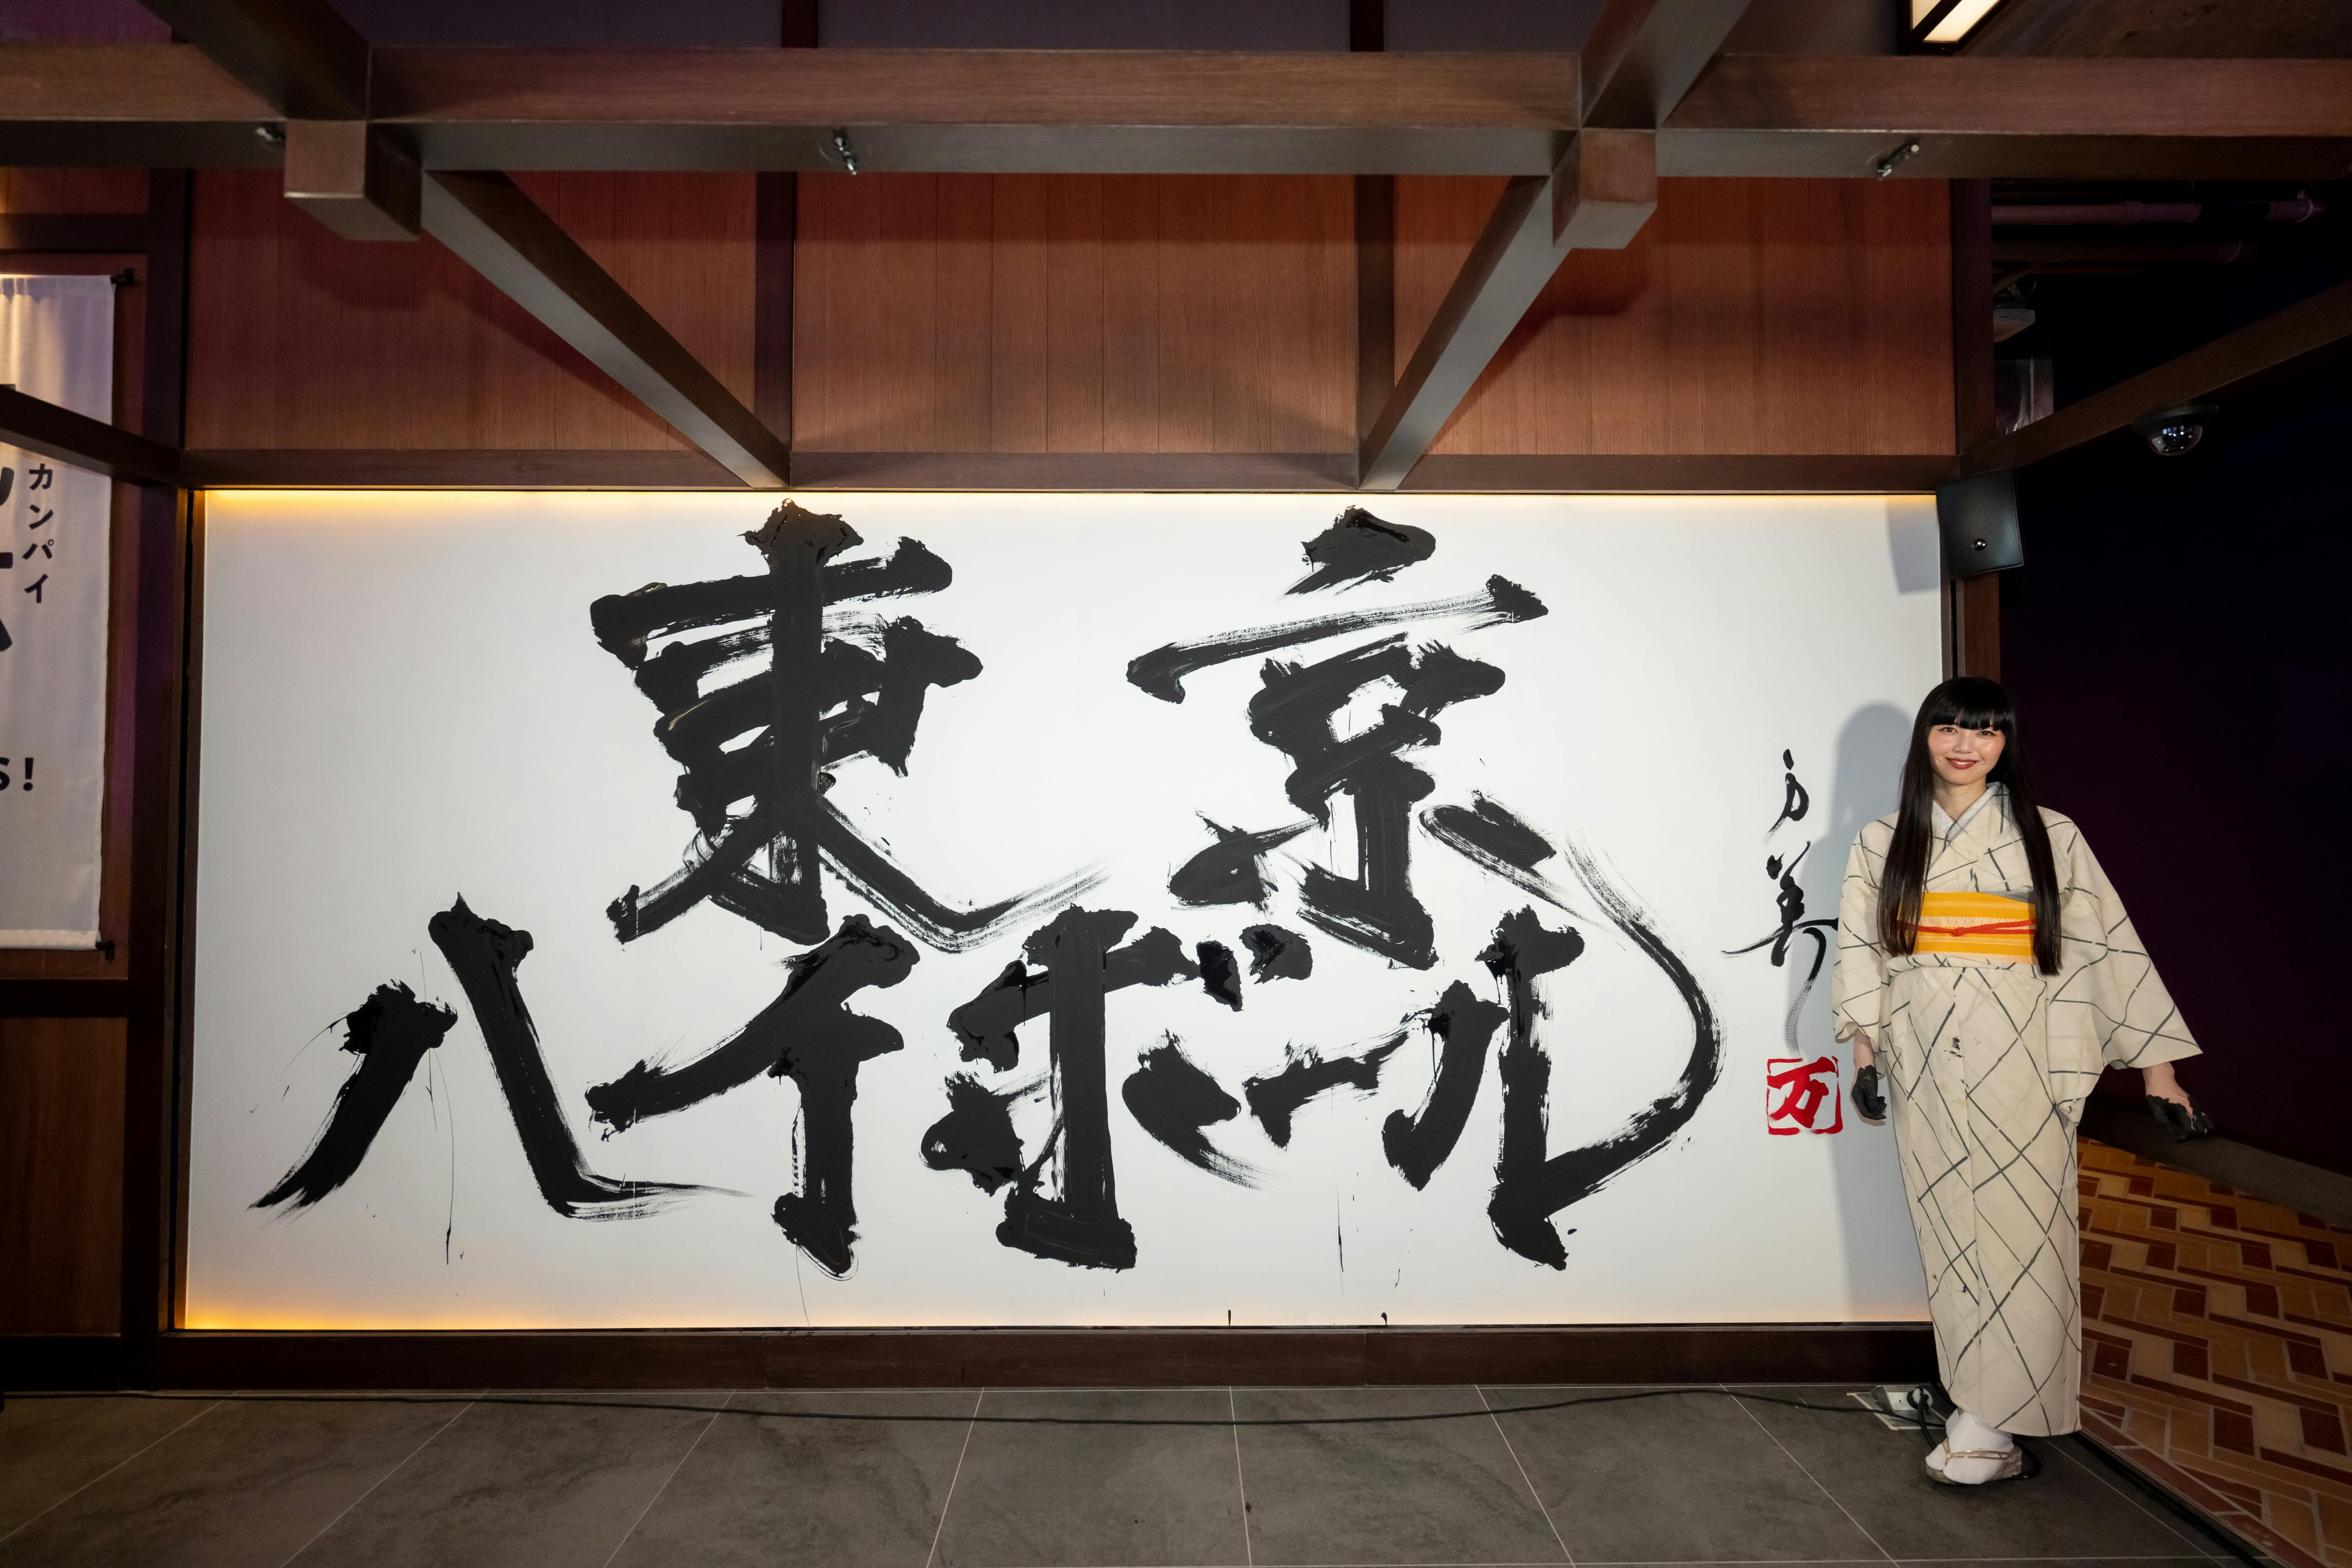 東京
ハイボール
万美
万
カンパイ
S!